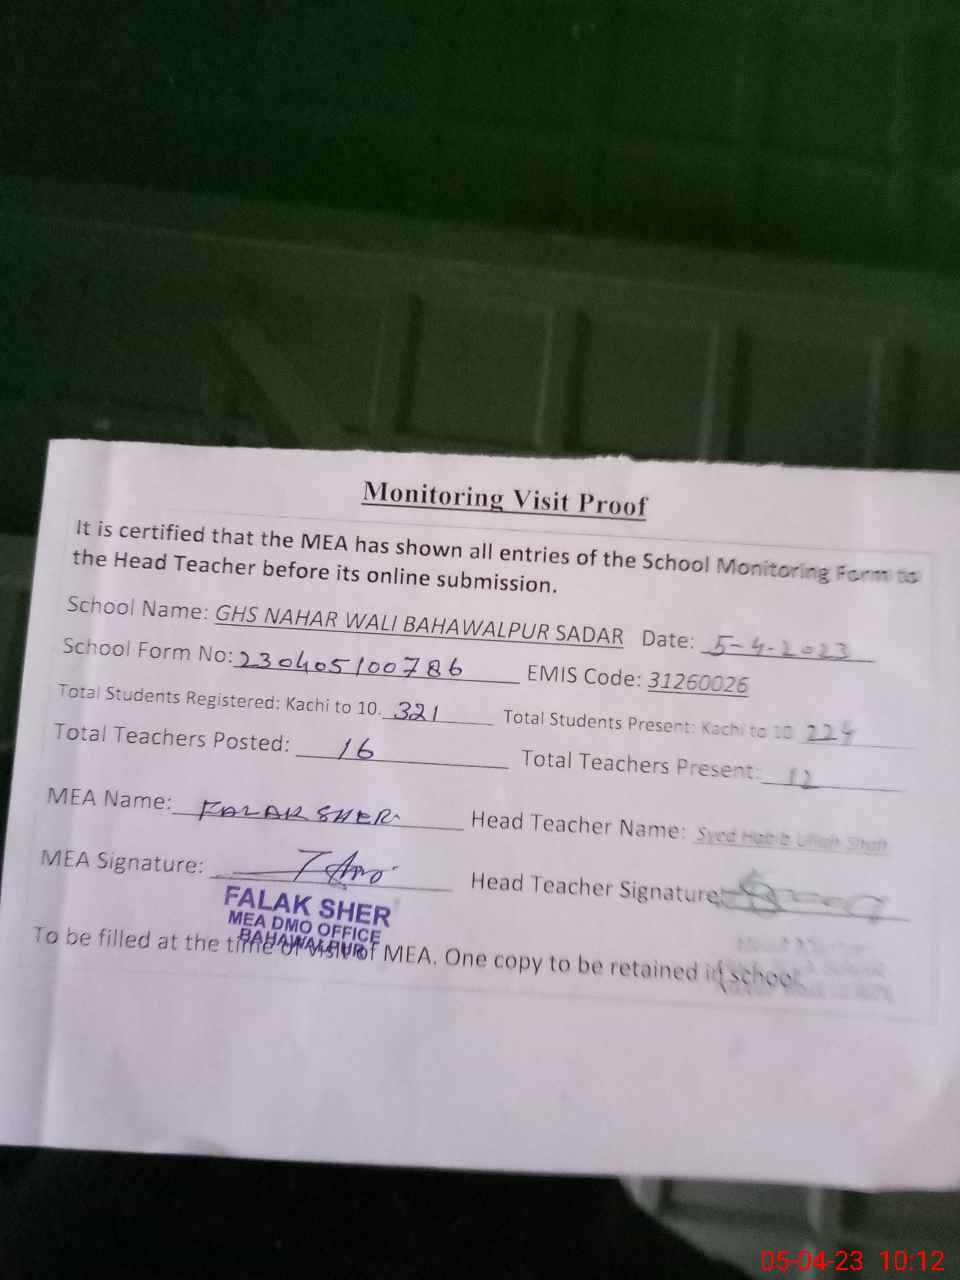 Monitoring Visit Proof
It is certified that the MEA has shown all entries of the School Monitoring Form to
the Head Teacher before its online submission.
School Name: GHS NAHAR WALI BAHAWALPUR SADAR Date: 5-4-2023
School Form No: 230405100786 EMIS Code: 31260026
Total Students Registered: Kachi to 10. 321 Total Students Present: Kachi to 10 224
Total Teachers Posted: 16 Total Teachers Present: 12
MEA Name: FALAK SHER Head Teacher Name: Syed Habib Ullah Shah
MEA Signature: Head Teacher Signature:
FALAK SHER
MEA DMO OFFICE
BAHAWALPUR
To be filled at the time of visit of MEA. One copy to be retained in school.
05-04-23 10:12